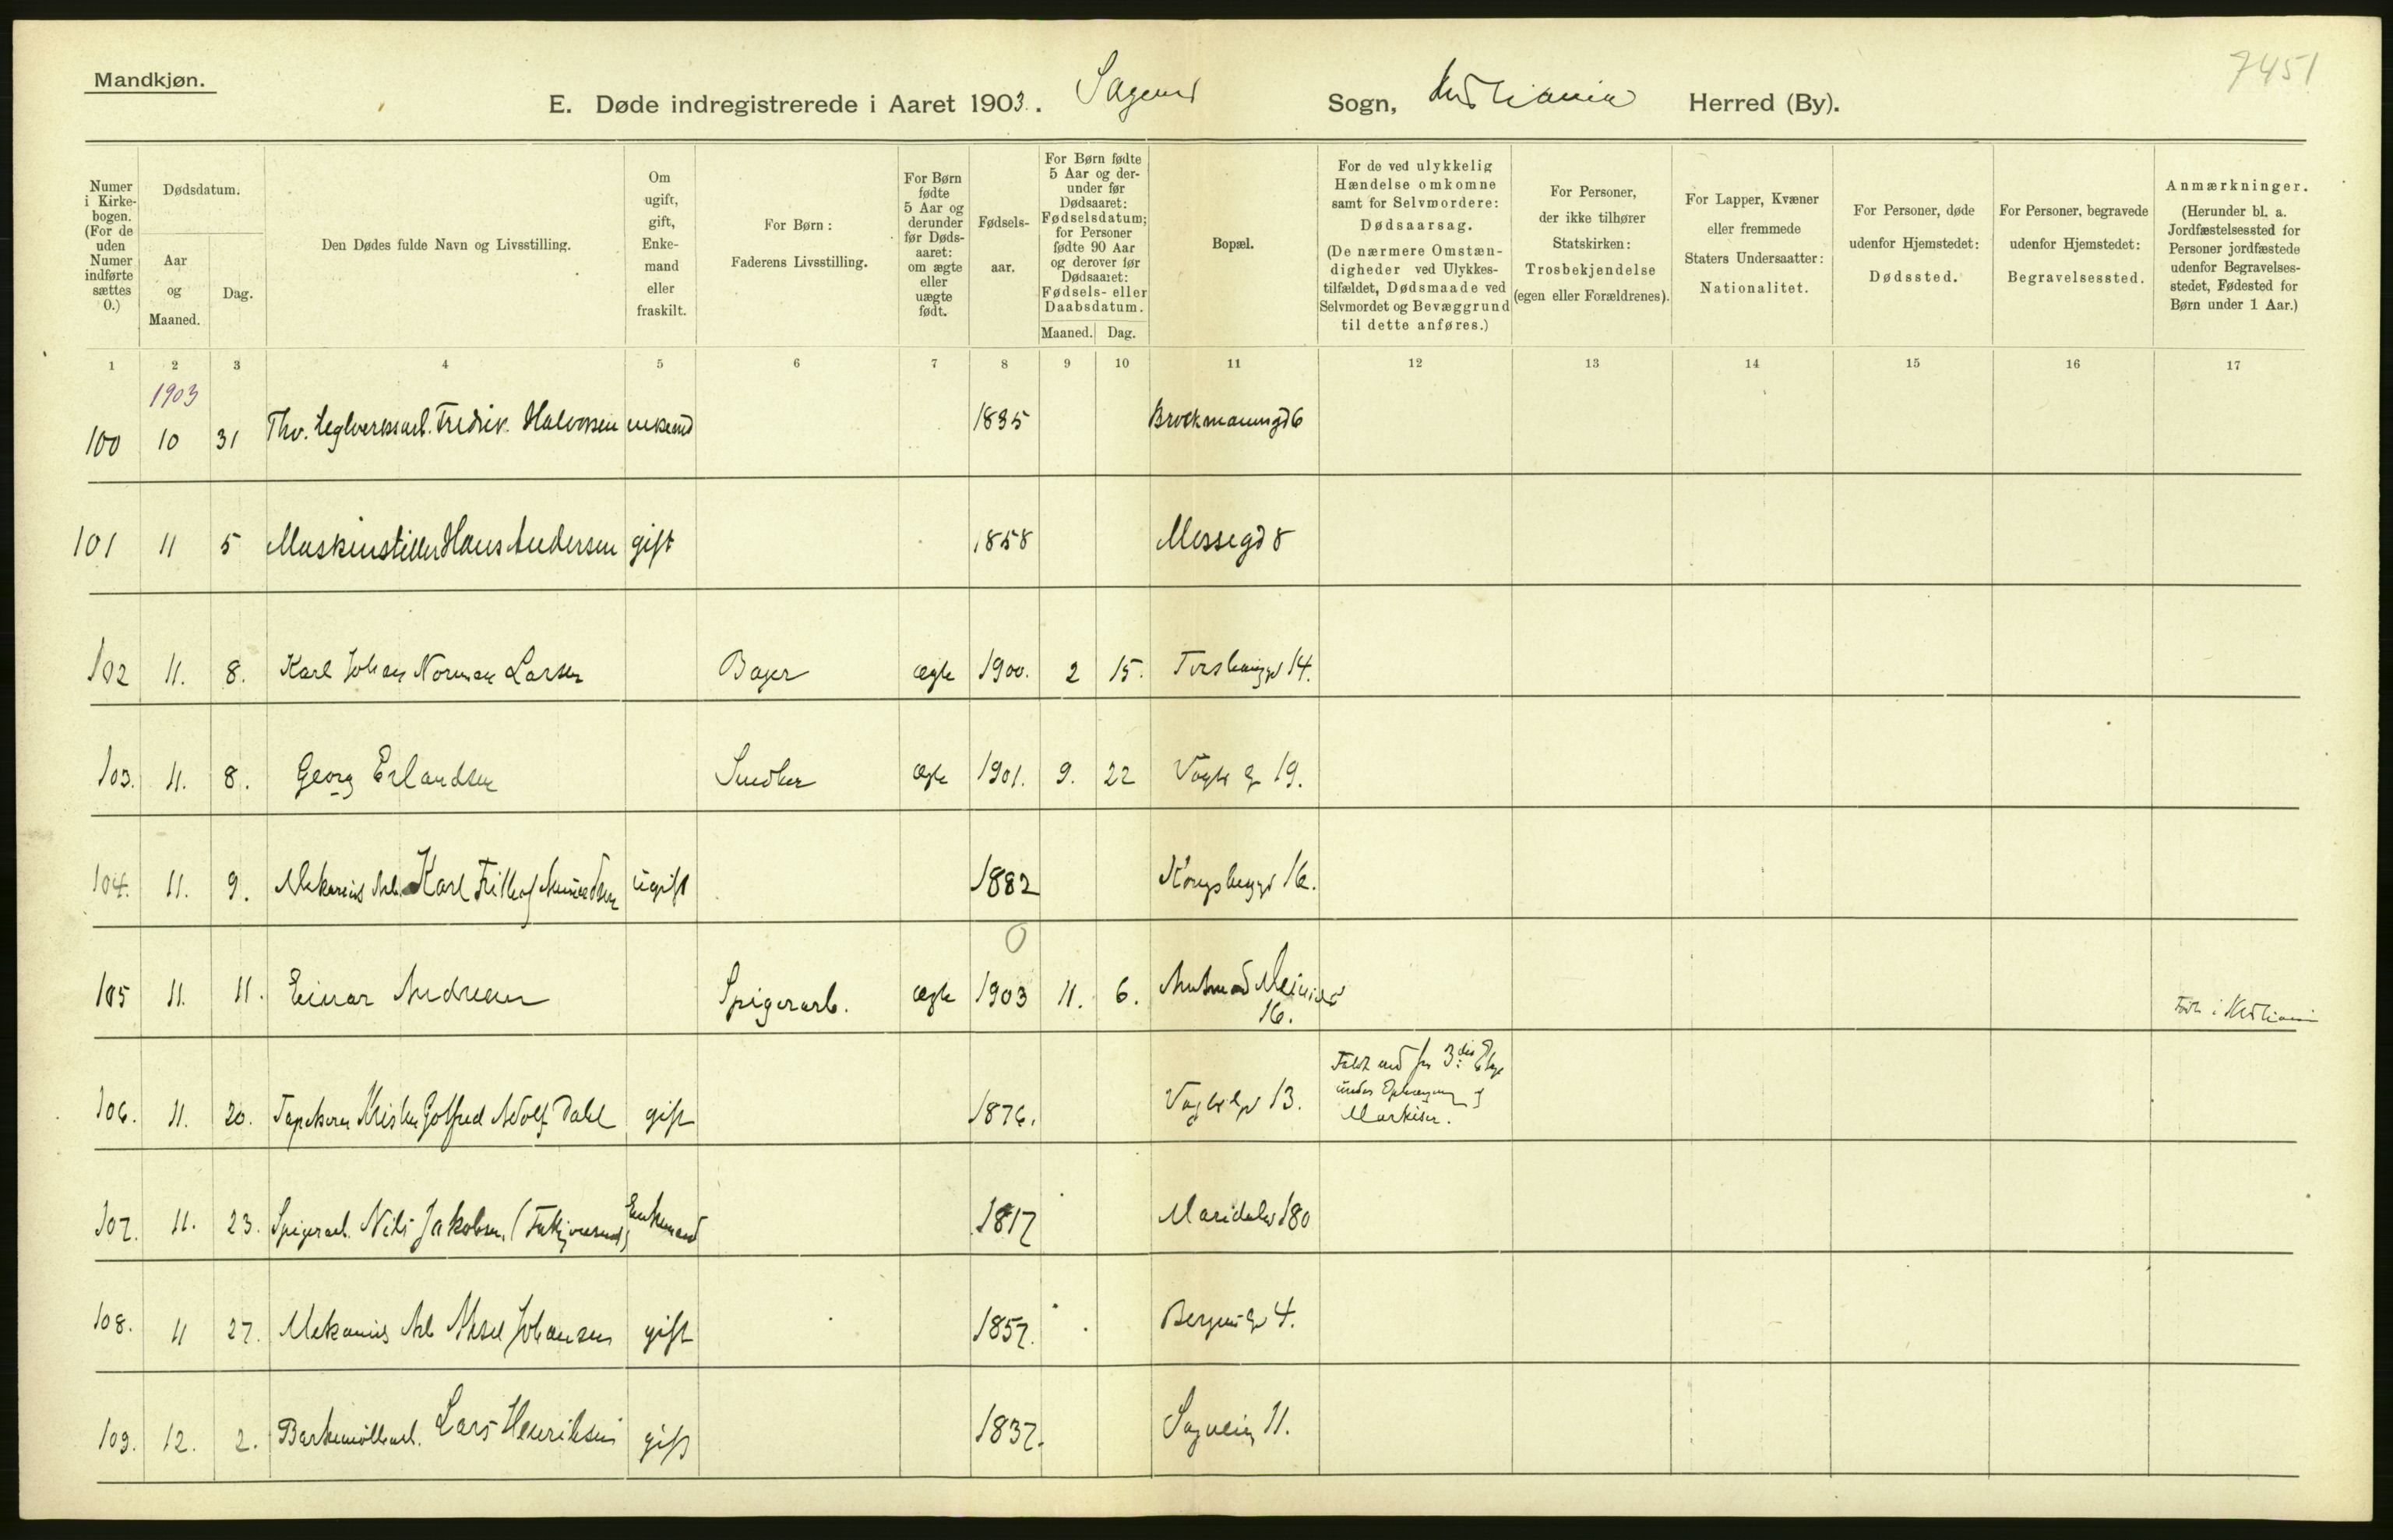 Mandkjøn.
7451
E. Døde indregistrerede i Aaret 1903. Sagenes Sogn, Kristiania Herred (By).
Numer i Kirkebogen. (For de uden Numer indførte sættes 0.)
Dødsdatum.
Aar og Maaned.
Dag.
Den Dødes fulde Navn og Livsstilling.
Om ugift, gift, Enkemand eller fraskilt.
For Børn: Faderens Livsstilling.
For Børn fødte 5 Aar og derunder før Dødsaaret: om ægte eller uægte født.
Fødselsaar.
For Børn fødte 5 Aar og derunder før Dødsaaret: Fødselsdatum; for Personer fødte 90 Aar og derover før Dødsaaret: Fødsels- eller Daabsdatum.
Maaned. Dag.
Bopæl.
For de ved ulykkelig Hændelse omkomne samt for Selvmordere: Dødsaarsag. (De nærmere Omstændigheder ved Ulykkestilfældet, Dødsmaade ved Selvmordet og Bevæggrund til dette anføres.)
For Personer, der ikke tilhører Statskirken: Trosbekjendelse (egen eller Forældrenes).
For Lapper, Kvæner eller fremmede Staters Undersaatter: Nationalitet.
For Personer, døde udenfor Hjemstedet: Dødssted.
For Personer, begravede udenfor Hjemstedet: Begravelsessted.
Anmærkninger. (Herunder bl. a. Jordfæstelsessted for Personer jordfæstede udenfor Begravelsesstedet, Fødested for Børn under 1 Aar.)
1 2 3 4 5 6 7 8 9 10 11 12 13 14 15 16 17
1903
100 10 31 Thv. teglverksarb. Fredrik Halvorsen enkemd 1835 Brockmannsgd 6
101 11 5 Maskinstiller Hans Andersen gift 1858 Messegd 8
102 11. 8. Karl Johan Norman Larsen Bager ægte 1900. 2 15. Torshauggd 14.
103. 11. 8. Georg Erlandsen Snedker ægte 1901. 9. 22 Vogts g 19.
104. 11. 9. Mekanisk Arb. Karl Frithjof Amundsen ugift 1882 Kongsberggd 16.
0
105 11. 11. Einar Andreasen Spigerarb. ægte 1903 11. 6. Amtmd Meinichs 16. Født i Kristiania
106. 11. 20. Tapetserer Kristen Gotfred Adolf Dahl gift 1876. Vogts gd 13. Faldt ned fra 3die Etage under Ophængning af Markiser.
107. 11. 23. Spigerarb. Nils Jakobsen Enkemand 1817 Maridalsv 180
108. 11 27. Mekanisk Arb Aksel Johansen gift 1857. Bergens gd 4.
109. 12. 2. Barkemøllearb. Lars Henriksen gift 1837. Sagvein 11.